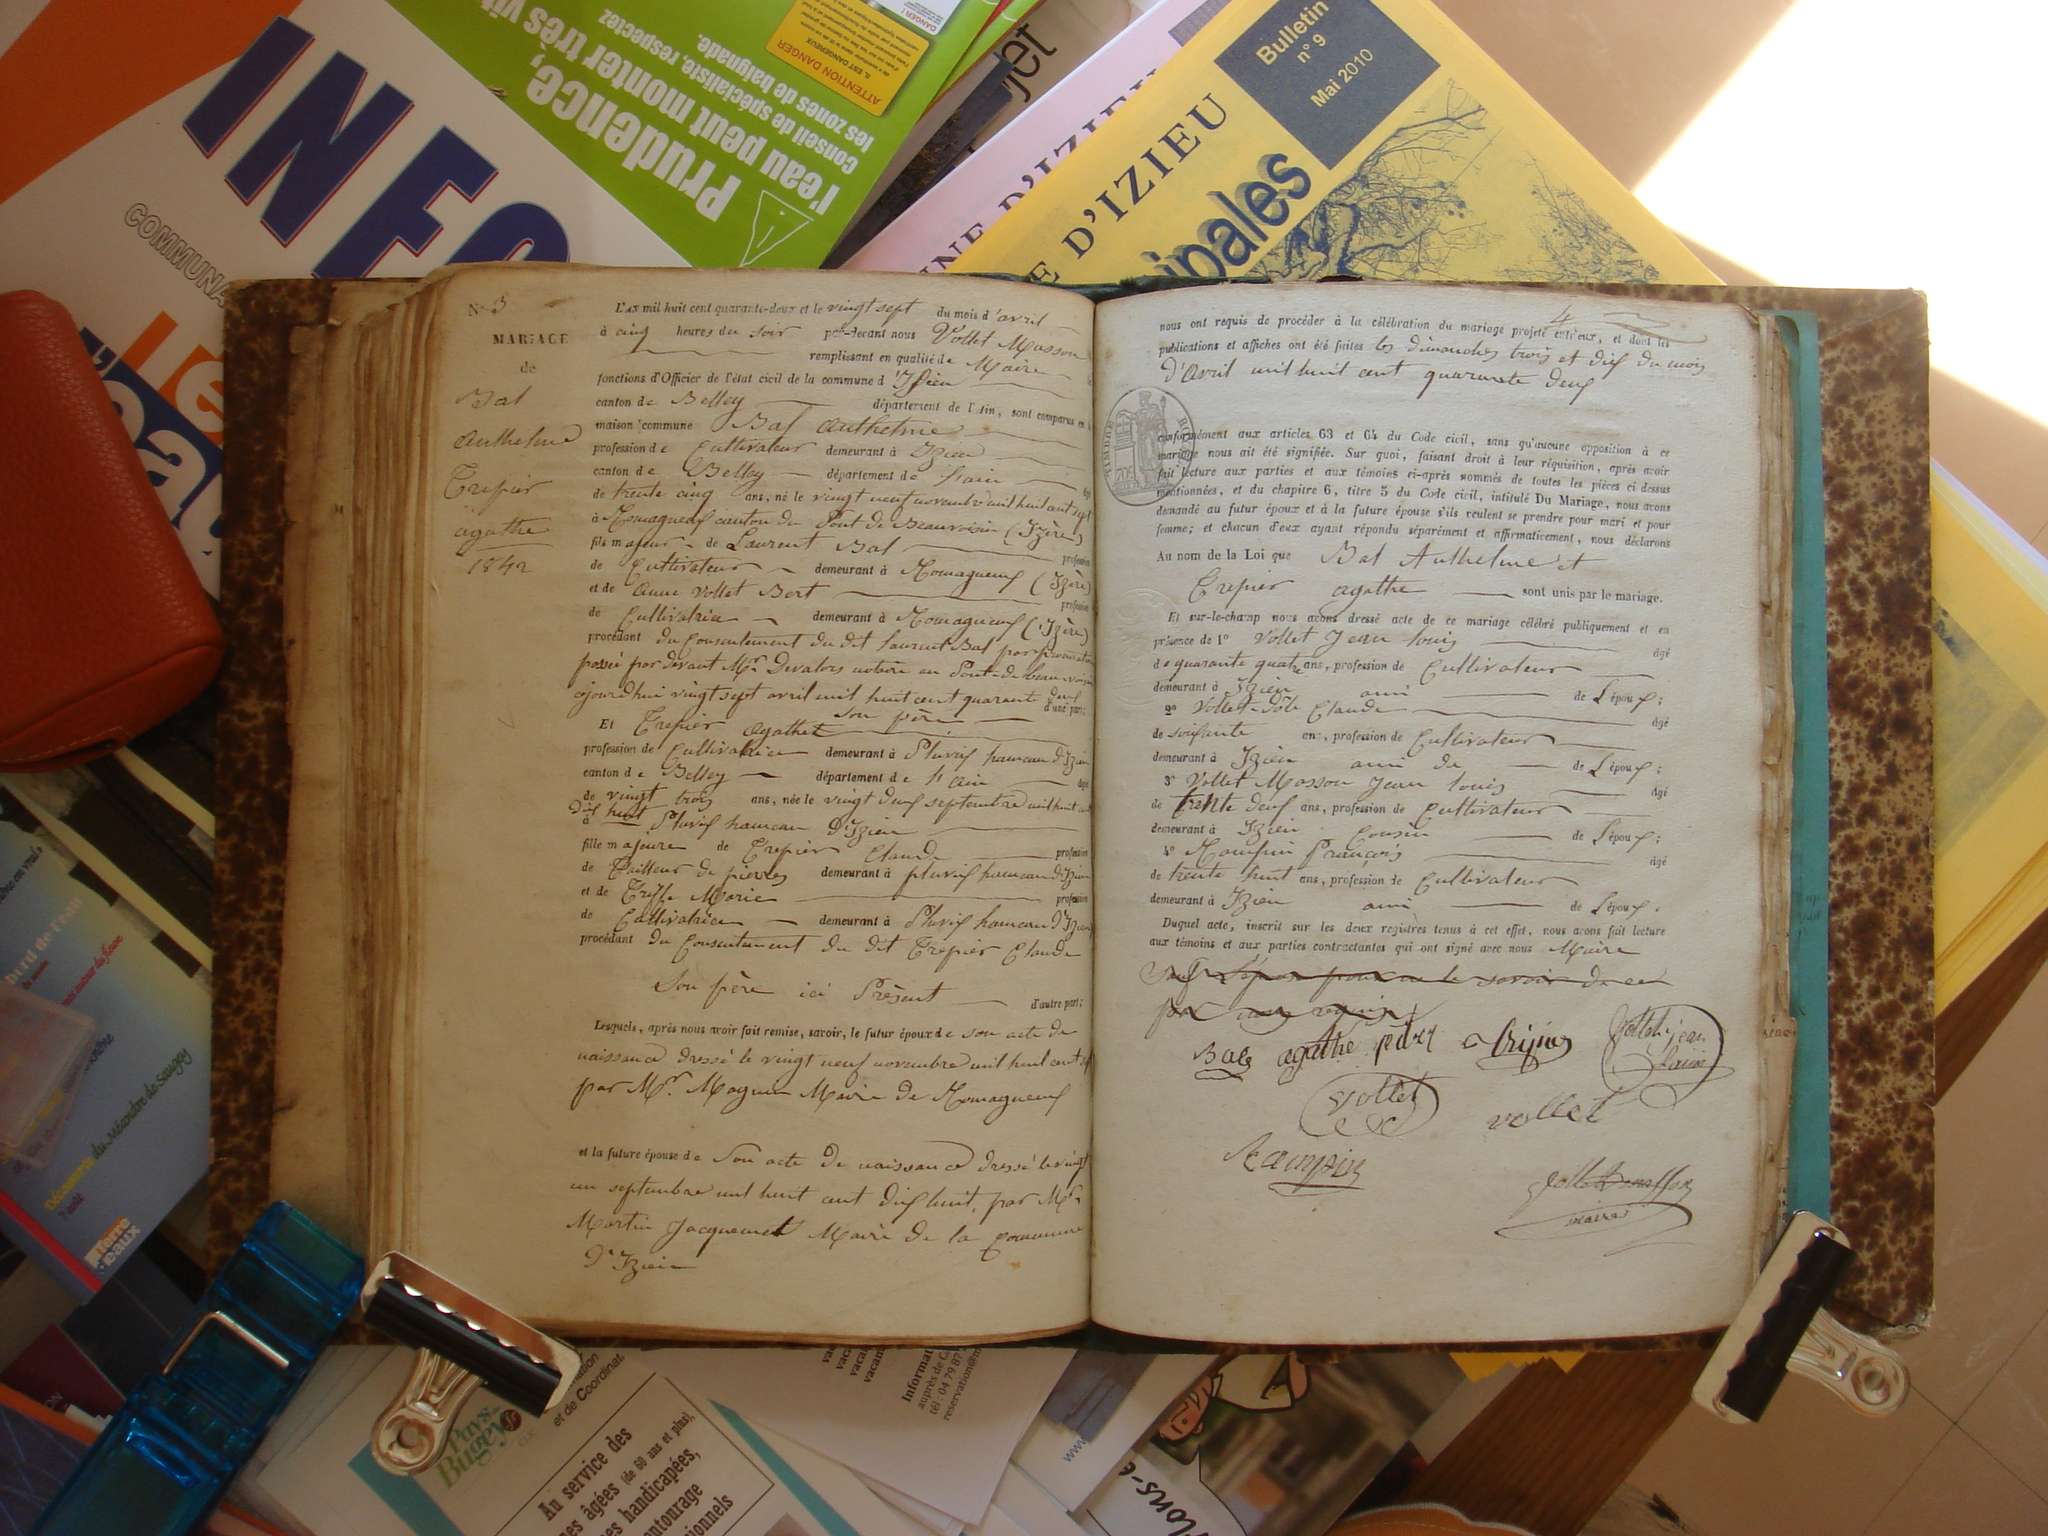 INFO
COMMUNA
Prudence,
l'eau peut monter très vit
conseil de spécialiste, respectez
les zones de baignade.
ATTENTION DANGER
DANGER !
Bulletin
n° 9
Mai 2010
NE D'IZIEU
E D'IZIEU
ipales
N° 3
MARIAGE
de
Bal
Anthelme
Trepier
agathe
1842
L'an mil huit cent quarante-deux et le vingt sept du mois d'avril
à cinq heures du soir par-devant nous Vollet Masson
remplissant en qualité de Maire
fonctions d'Officier de l'état civil de la commune d'Izieu
canton de Belley département de l'Ain, sont comparus en la
maison commune Bal anthelme
profession de Cultivateur demeurant à Izieu
canton de Belley département de l'ain âgé
de trente cinq ans, né le vingt neuf novembre mil huit cent sept
à Romagneux canton du Pont de Beauvoisin (Izère)
fils majeur de Laurent Bal profession
de Cultivateur demeurant à Romagneux (Izère)
et de Anne Vollet Bert profession
de Cultivatrice demeurant à Romagneux (Izère)
procédant du Consentement du dit Laurent Bal par procuration
passée par devant Mr. Devalors notaire au Pont-de-beauvoisin
cejourd'hui vingt sept avril mil huit cent quarante deux
son père d'une part;
Et Trepier agathe
profession de Cultivatrice demeurant à Pluvis hameau d'Izieu
canton de Belley département de l'ain âgé
de vingt trois ans, née le vingt deux septembre mil huit cent
dix huit
à Pluvis hameau D'Izieu
fille majeure de Trepier Claude profession
de Tailleur de pierres demeurant à pluvis hameau d'Izieu
et de Triffe Marie profession
de Cultivatrice demeurant à Pluvis hameau D'Izieu
procédant du Consentement du dit Trepier Claude
Son père ici Présent d'autre part;
Lesquels, après nous avoir fait remise, savoir, le futur époux de son acte de
naissance dressé le vingt neuf novembre mil huit cent sept
par Mr. Magnin Maire de Romagneux
et la future épouse de Son acte de naissance dressé le vingt
un septembre mil huit cent dix huit, par Mr.
Martin Jacquemet Maire de la Commune
D'Izieu
4
nous ont requis de procéder à la célébration du mariage projeté entr'eux, et dont les
publications et affiches ont été faites les dimanches trois et dix du mois
d'avril mil huit cent quarante deux
TIMBRE ROYAL
conformément aux articles 63 et 64 du Code civil, sans qu'aucune opposition à ce
mariage nous ait été signifiée. Sur quoi, faisant droit à leur réquisition, après avoir
fait lecture aux parties et aux témoins ci-après nommés de toutes les pièces ci dessus
mentionnées, et du chapitre 6, titre 5 du Code civil, intitulé Du Mariage, nous avons
demandé au futur époux et à la future épouse s'ils veulent se prendre pour mari et pour
femme; et chacun d'eux ayant répondu séparément et affirmativement, nous déclarons
Au nom de la Loi que Bal Anthelme et
Trepier agathe sont unis par le mariage.
Et sur-le-champ nous avons dressé acte de ce mariage célébré publiquement et en
présence de 1° Vollet Jean Louis âgé
de quarante quatre ans, profession de Cultivateur
demeurant à Izieu ami de l'époux;
2° Vollet-Dôle Claude âgé
de soixante ans, profession de Cultivateur
demeurant à Izieu ami de de l'époux;
3° Vollet Masson Jean Louis âgé
de trente deux ans, profession de Cultivateur
demeurant à Izieu Cousin de l'époux;
4° Rampin François âgé
de trente huit ans, profession de Cultivateur
demeurant à Izieu ami de l'époux.
Duquel acte, inscrit sur les deux registres tenus à cet effet, nous avons fait lecture
aux témoins et aux parties contractantes qui ont signé avec nous Maire
Bal agathe Vollet jean
Louis
Vollet vollet
Rampin
Vollet Masson
maire
Terre
d'eaux
Découverte du Méandre du Saugey
Pays-
Bugey
et de Coordinat
Au service des
âgées (de 60 ans et plus),
handicapées,
entourage
sionnels
Informat
auprès de
tél : 04 79 87
reservation@
www.